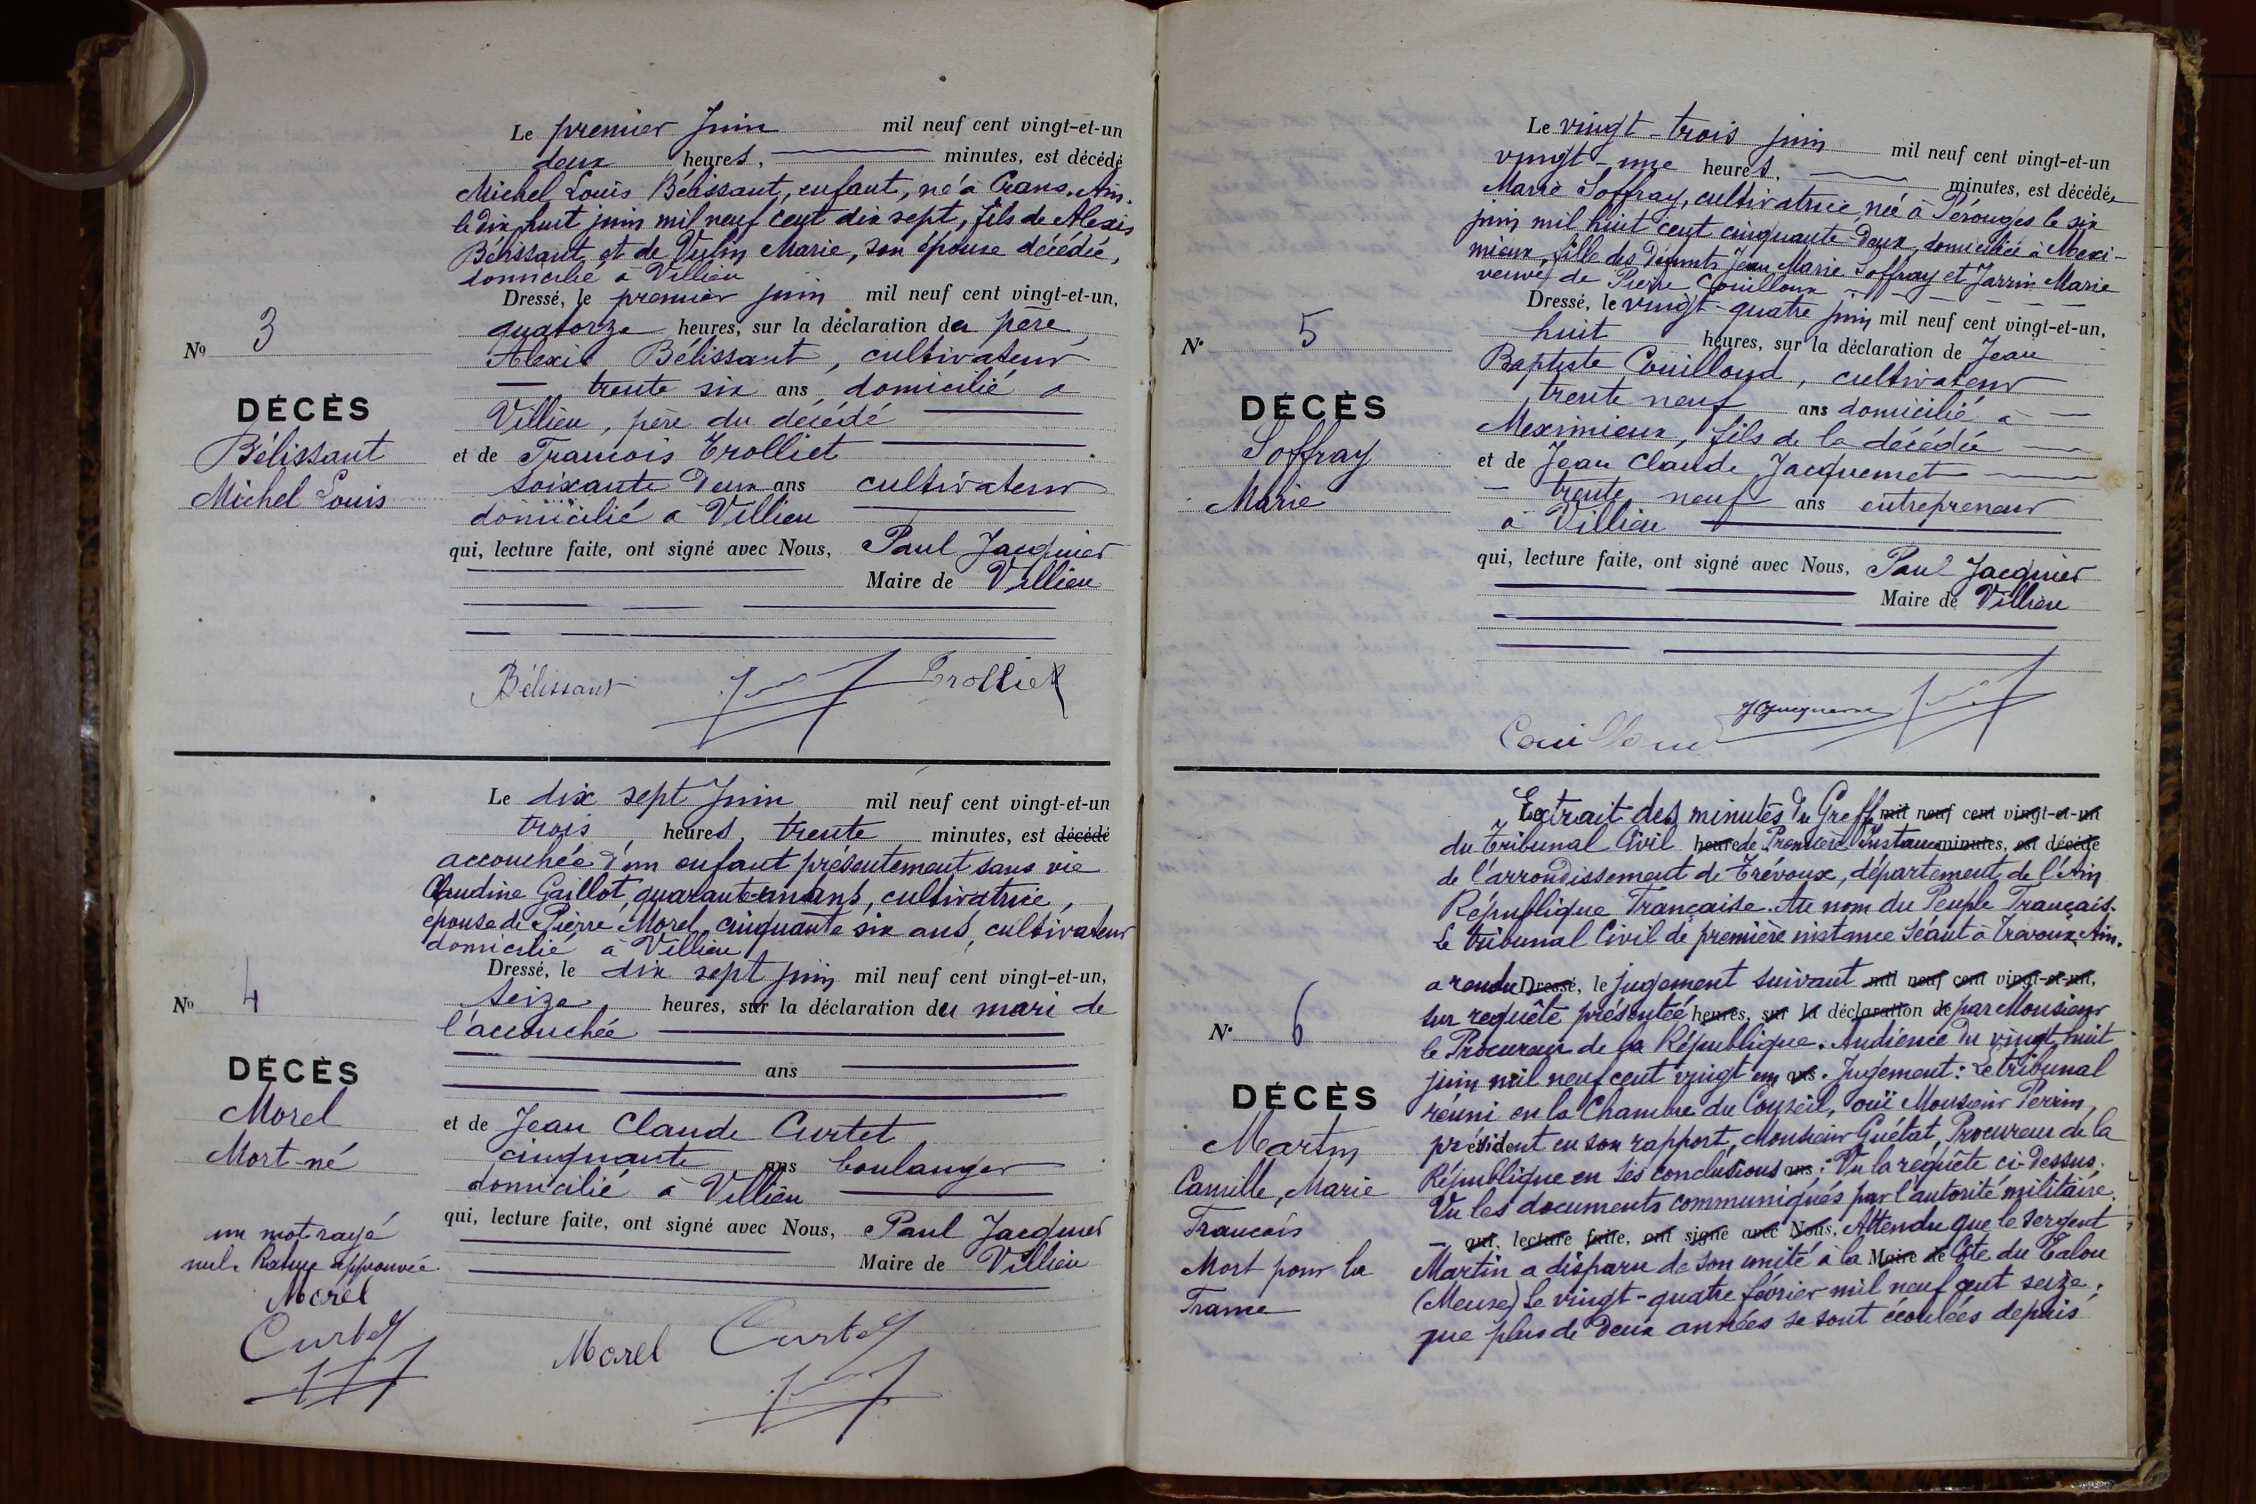 Le premier Juin mil neuf cent vingt-et-un
deux heures, minutes, est décédé
Michel Louis Bélissant, enfant, né à Crans. Ain.
le dix huit juin mil neuf cent dix sept, fils de Alexis
Bélissant et de Vulin Marie, son épouse décédée,
domicilié à Villieu
Dressé, le premier juin mil neuf cent vingt-et-un,
quatorze heures, sur la déclaration du père
Alexis Bélissant, cultivateur
trente six ans domicilié a
Villieu, père du décédé
et de Francois Trolliet
soixante Deux ans cultivateur
domicilié a Villieu
qui, lecture faite, ont signé avec Nous, Paul Jacquier
Maire de Villieu
Bélissant Trolliet
No 3
DÉCÈS
Bélissant
Michel Louis
Le dix sept Juin mil neuf cent vingt-et-un
trois heures, trente minutes, est décédé
accouchée d'un enfant présentement sans vie
Claudine Gaillot, cultivatrice,
épouse de Pierre Morel, cinquante six ans, cultivateur
domicilié à Villieu
Dressé, le dix sept juin mil neuf cent vingt-et-un,
seize heures, sur la déclaration du mari de
l'accouchée
ans
et de Jean Claude Curtet
cinquante ans boulanger
domicilié à Villieu
qui, lecture faite, ont signé avec Nous, Paul Jacquier
Maire de Villieu
Morel Curtet
No 4
DÉCÈS
Morel
Mort-né
un mot rayé
nul. Rature approuvée
Morel
Curtet
Le vingt-trois juin mil neuf cent vingt-et-un
vingt-une heures, minutes, est décédée
Marie Soffray, cultivatrice née à Pérouges le six
juin mil huit cent cinquante-deux, domiciliée à Mexi-
mieux, fille des Défunts Jean Marie Soffray et Jarrin Marie
veuve de Pierre Couilloux
Dressé, le vingt-quatre juin mil neuf cent vingt-et-un,
huit heures, sur la déclaration de Jean
Baptiste Couilloud, cultivateur
trente neuf ans domicilié à
Meximieux, fils de la décédée
et de Jean Claude Jacquemet
trente neuf ans entrepreneur
à Villieu
qui, lecture faite, ont signé avec Nous, Paul Jacquier
Maire de Villieu
Couilloud
No 5
DÉCÈS
Soffray
Marie
Extrait des minutes du Greffe mil neuf cent vingt-et-un
du Tribunal Civil heure de Première Instance minutes, est décédé
de l'arrondissement de Trévoux, département de l'Ain
République Française. Au nom du Peuple Français.
Le tribunal Civil de première instance séant à Trévoux, Ain.
a rendu Dressé, le jugement suivant mil neuf cent vingt-et-un,
sur requête présentée heures, sur la déclaration de par Monsieur
le Procureur de la République. Audience du vingt huit
juin mil neuf cent vingt un ans. Jugement: Le tribunal
réuni en la Chambre du Conseil, ouï Monsieur Perrin,
président en son rapport, Monsieur Guétat, Procureur de la
République en ses conclusions ans: Vu la requête ci-dessus;
Vu les documents communiqués par l'autorité militaire.
qui, lecture faite, ont signé avec Nous, Attendu que le sergent
Martin a disparu de son unité à la Maire de Côte du Talou
(Meuse) le vingt-quatre février mil neuf cent seize;
que plus de deux années se sont écoulées depuis
No 6
DÉCÈS
Martin
Camille, Marie
Francois
Mort pour la
France